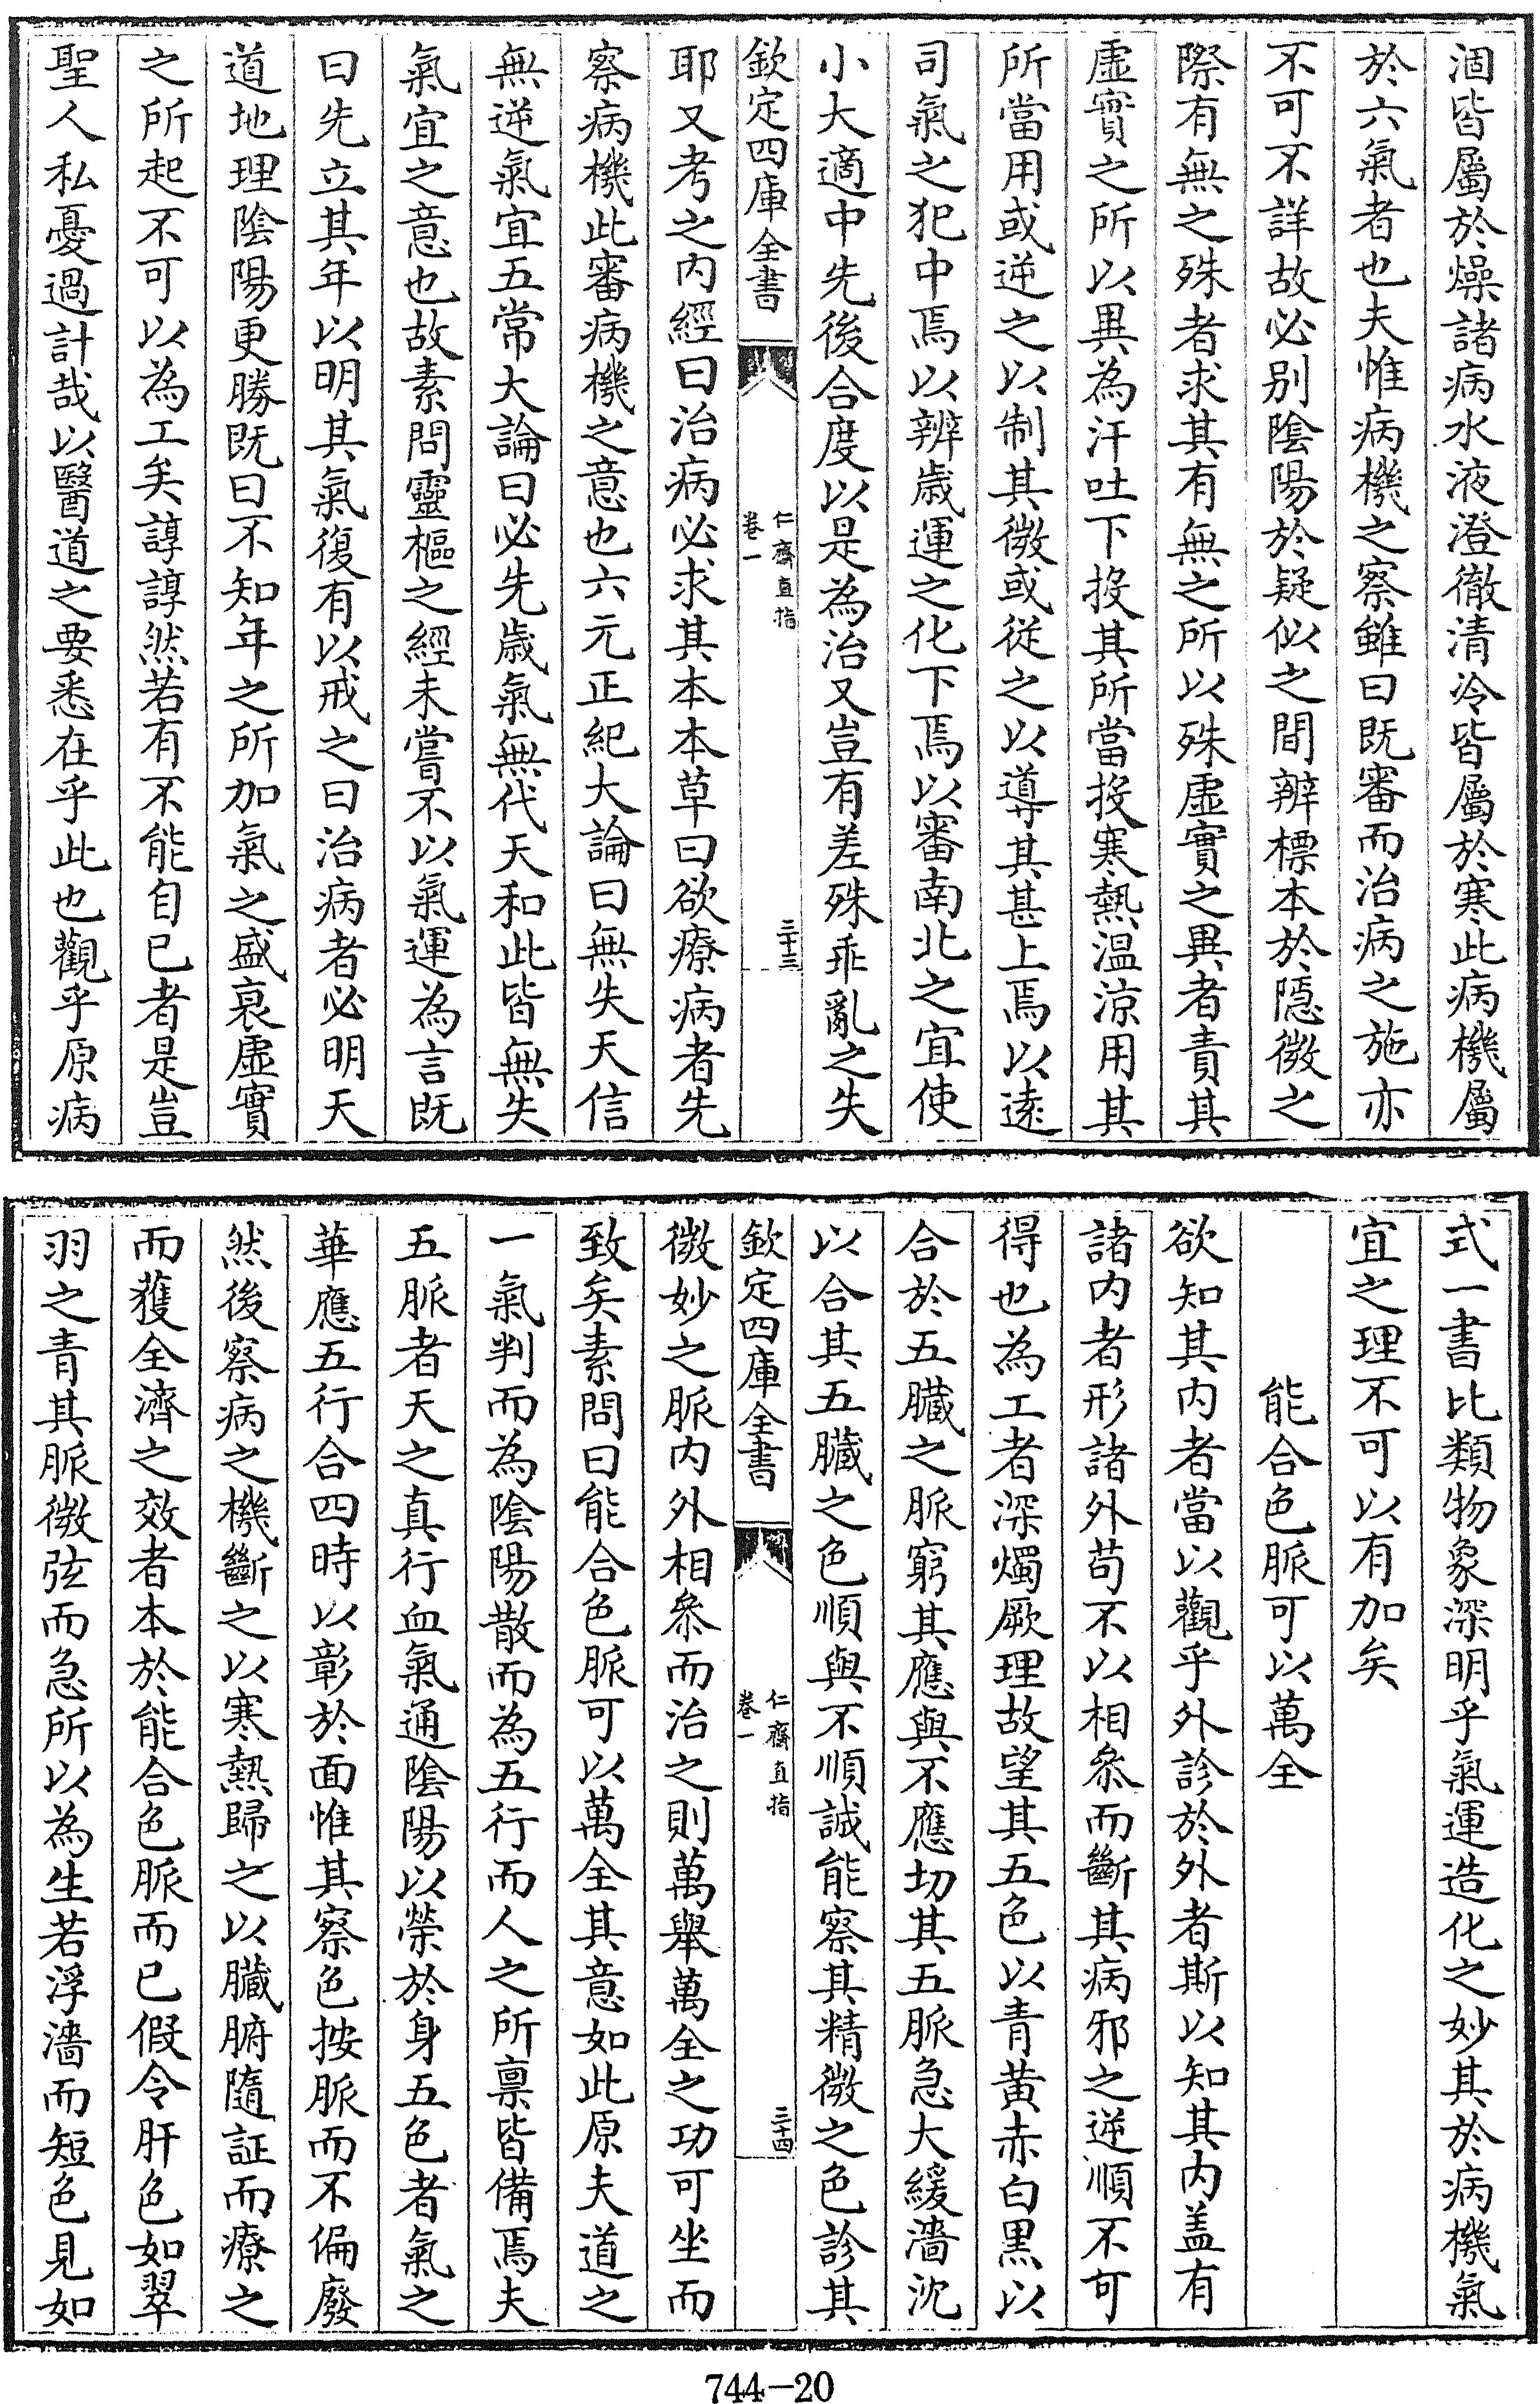 涸皆屬於燥諸病水液澄徹清冷皆屬於寒此病機屬
於六氣者也夫惟病機之察雖曰既審而治病之施亦
不可不詳故必别陰陽於疑似之間辨標本於隱微之
際有無之殊者求其有無之所以殊虛實之異者責其
虛實之所以異為汗吐下投其所當投寒熱温涼用其
所當用或逆之以制其微或從之以導其甚上焉以遠
司氣之犯中焉以辨歲運之化下焉以審南北之宜使
小大適中先後合度以是為治又豈有差殊乖亂之失
欽定四庫全書
仁齋直指
卷一
三十三
耶又考之内經曰治病必求其本本草曰欲療病者先
察病機此審病機之意也六元正紀大論曰無失天信
無逆氣宜五常大論曰必先歲氣無代天和此皆無失
氣宜之意也故素問靈樞之經未嘗不以氣運為言既
曰先立其年以明其氣復有以戒之曰治病者必明天
道地理陰陽更勝既曰不知年之所加氣之盛衰虛實
之所起不可以為工矣諄諄然若有不能自已者是豈
聖人私憂過計哉以醫道之要悉在乎此也觀乎原病
式一書比類物象深明乎氣運造化之妙其於病機氣
宜之理不可以有加矣
能合色脈可以萬全
欲知其内者當以觀乎外診於外者斯以知其内盖有
諸内者形諸外苟不以相叅而斷其病邪之逆順不可
得也為工者深燭厥理故望其五色以青黃赤白黑以
合於五臟之脈窮其應與不應切其五脈急大緩濇沈
以合其五臟之色順與不順誠能察其精微之色診其
欽定四庫全書
仁齋直指
卷一
三十四
微妙之脈内外相叅而治之則萬舉萬全之功可坐而
致矣素問曰能合色脈可以萬全其意如此原夫道之
一氣判而為陰陽散而為五行而人之所禀皆備焉夫
五脈者天之真行血氣通陰陽以榮於身五色者氣之
華應五行合四時以彰於面惟其察色按脈而不偏廢
然後察病之機斷之以寒熱歸之以臟腑隨証而療之
而獲全濟之效者本於能合色脈而已假令肝色如翠
羽之青其脈微弦而急所以為生若浮濇而短色見如
744-20